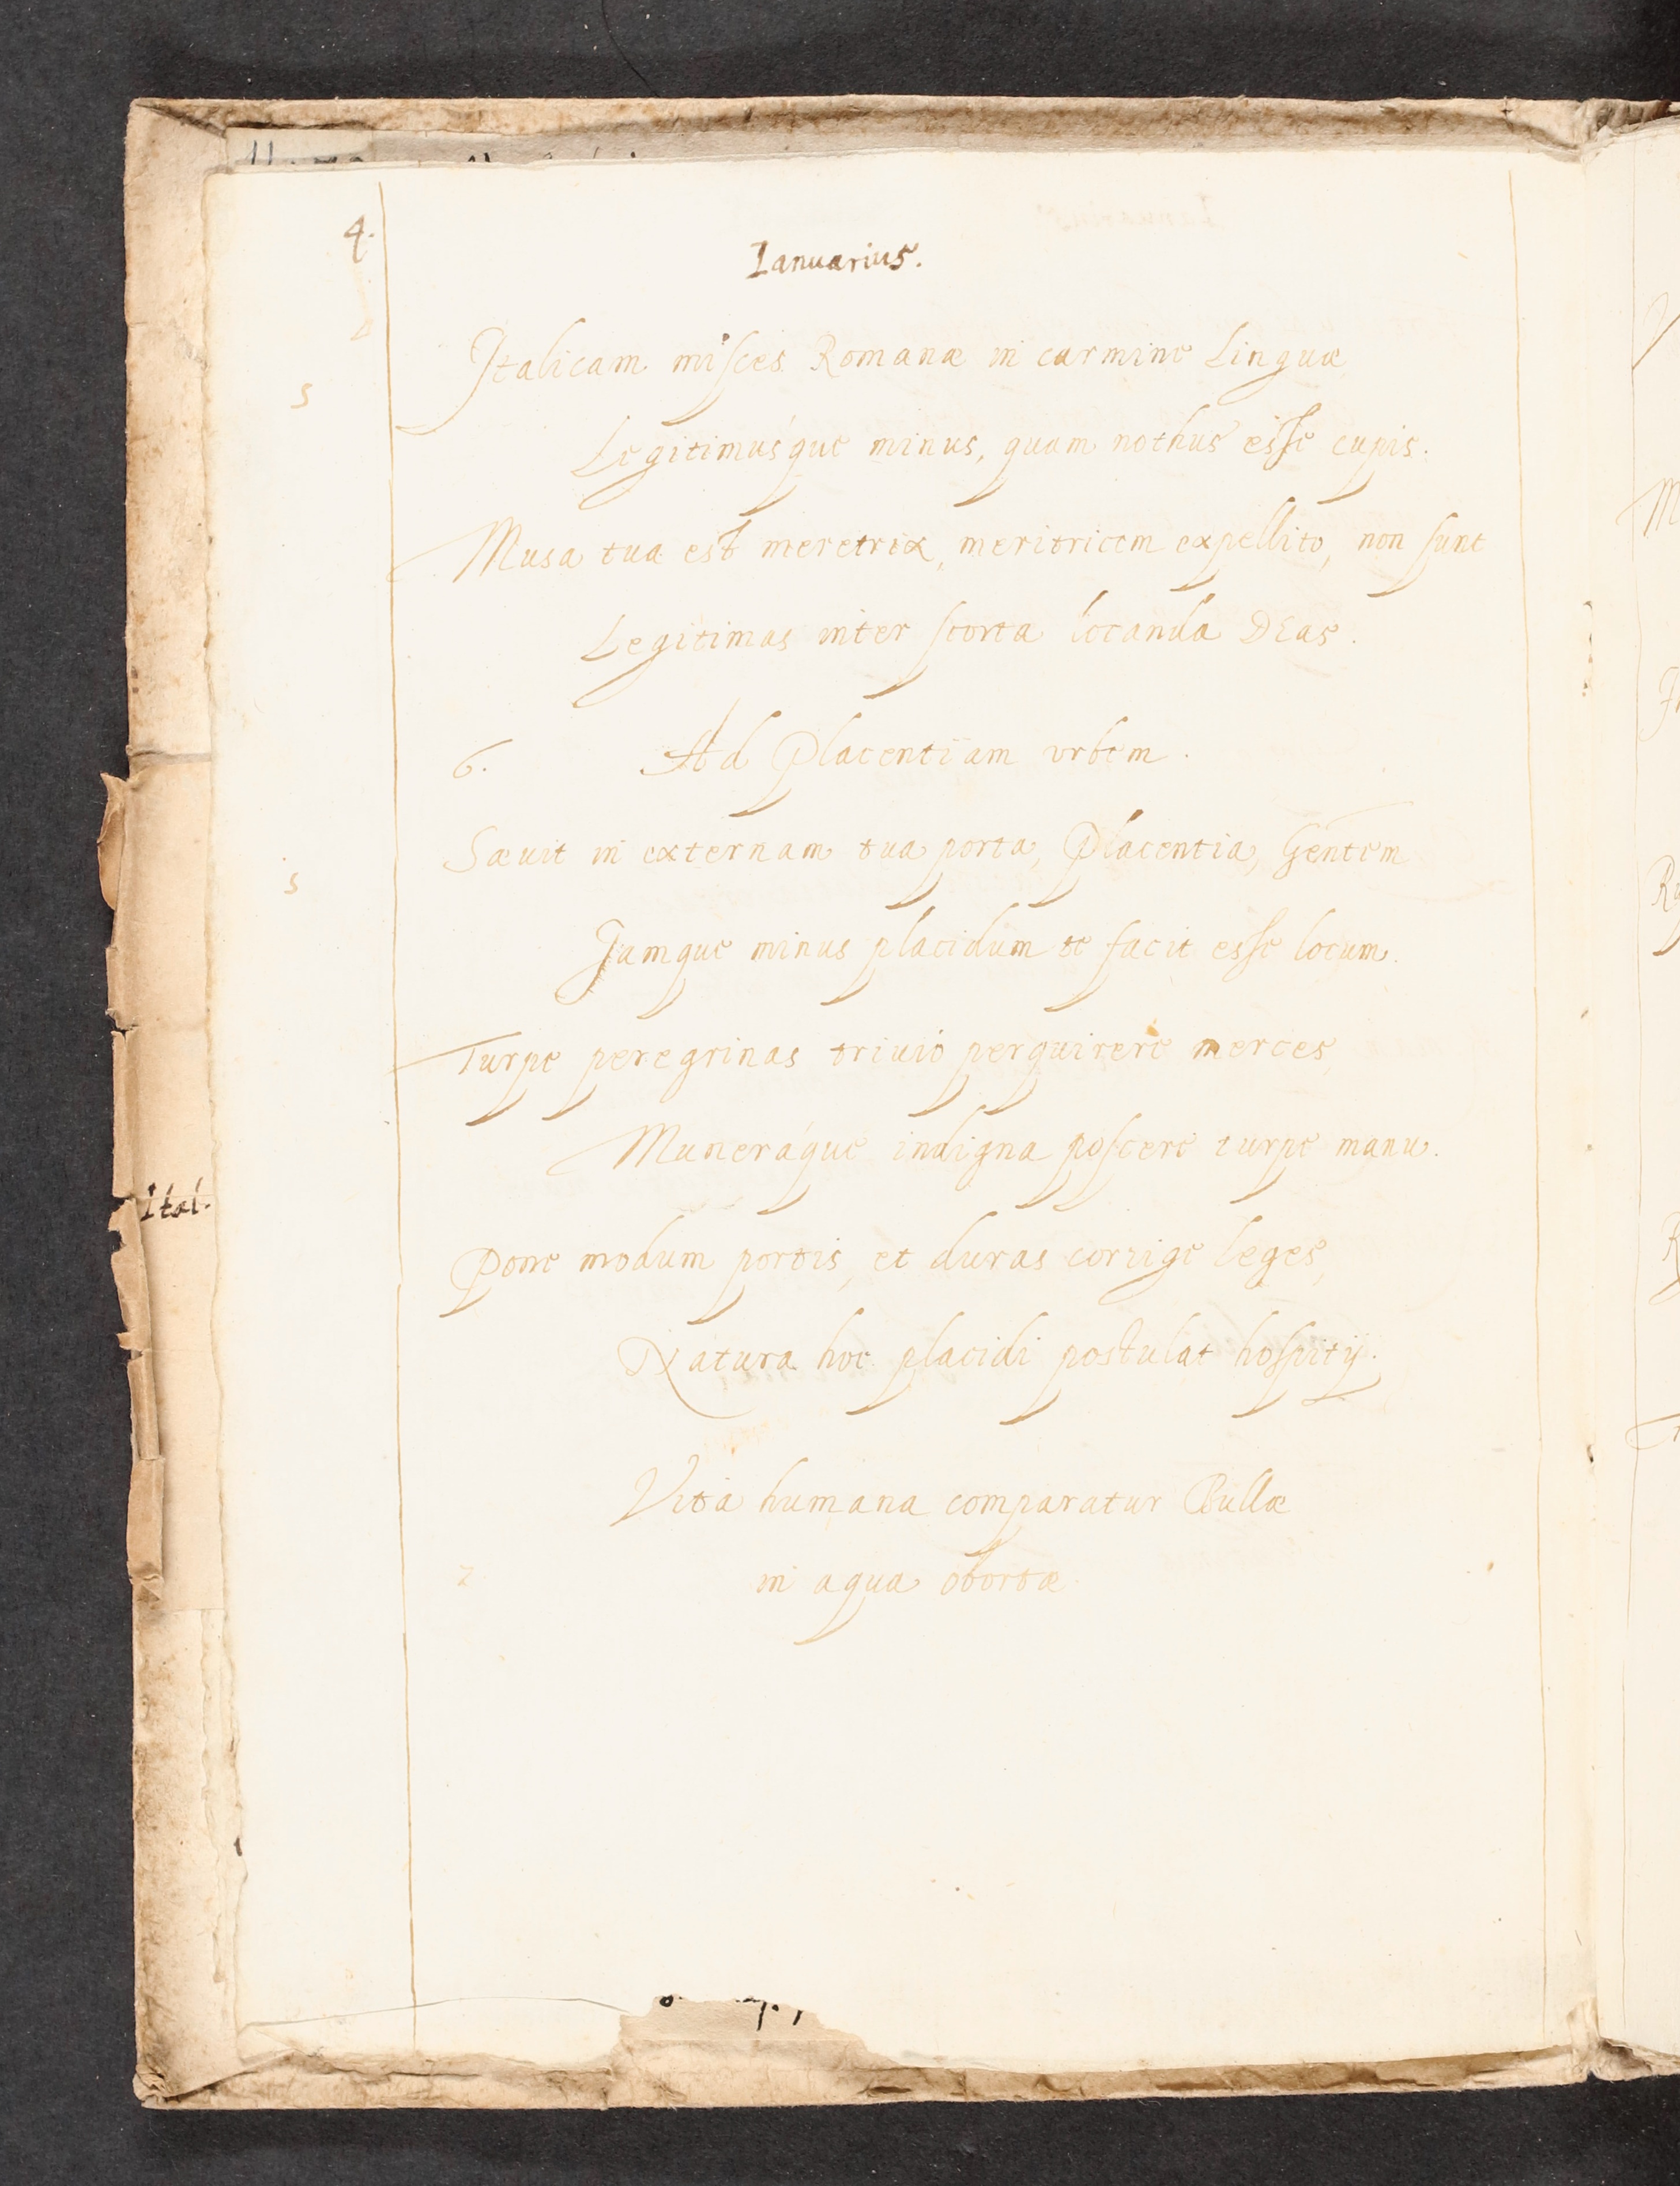 4.
Ianuarius.
Italicam misces Romanæ in carmine Linguæ
s
Legitimusque minus, quam nothus esse cupis.
Musa tua est meretrix, meritricem expellito, non sunt
Legitimas inter scorta locanda DEas.
6. Ad Placentiam vrbem.
Sæuit in externam tua porta, Placentia, Gentem
s
Jamque minus placidum te facit esse locum.
Turpe peregrinas triuio perquirere merces,
Muneráque indigna poscere turpe manu.
Ital.
Pone modum portis, et duras corrige leges,
Natura hoc placidi postulat hospitij.
Vita humana comparatur Bullæ
7 in aqua obortæ